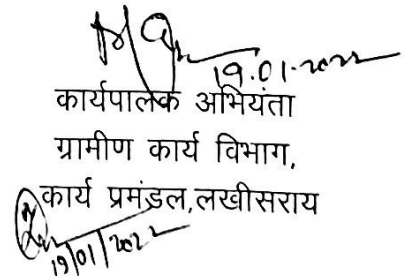 19.01.2022
कार्यपालक अभियंता
ग्रामीण कार्य विभाग,
कार्य प्रमंडल,लखीसराय
19/01/2022